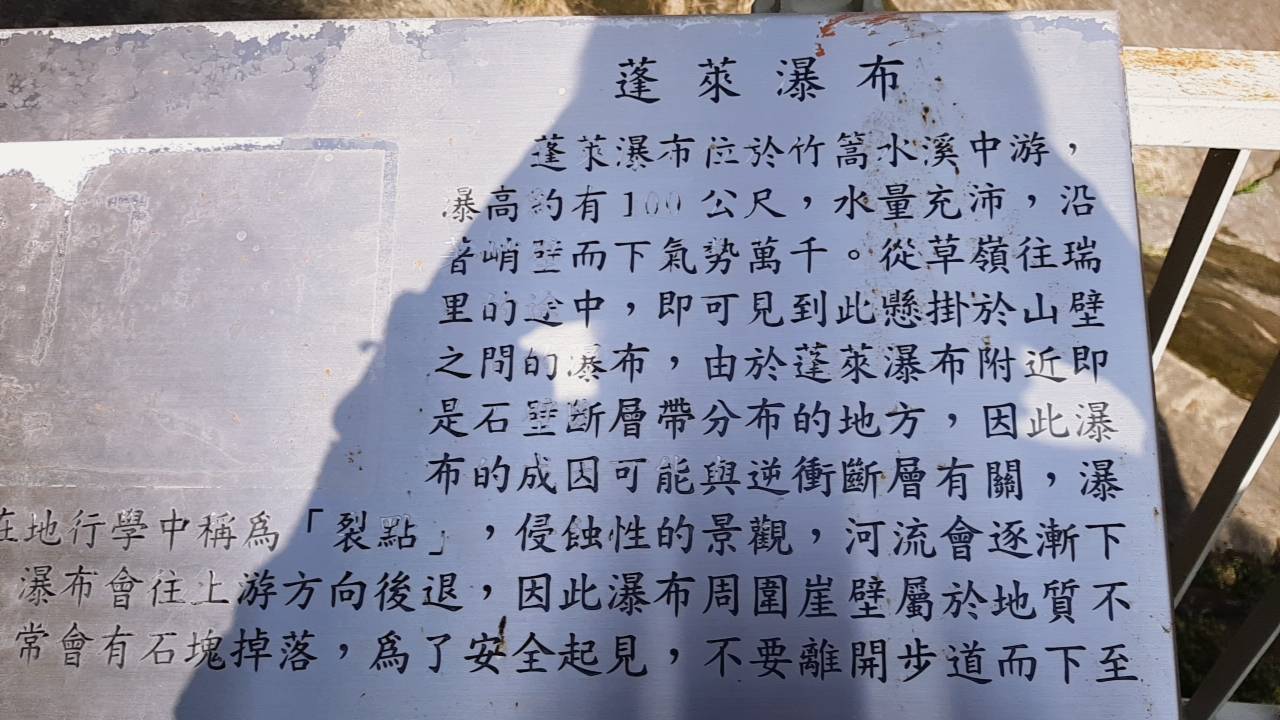 蓬萊瀑布
蓬萊瀑布位於竹篙水溪中游，
瀑高約有100公尺，水量充沛，沿
著峭壁而下氣勢萬千。從草嶺往瑞
里的途中，即可見到此懸掛於山壁
之間的瀑布，由於蓬萊瀑布附近即
是石壁斷層帶分布的地方，因此瀑
布的成因可能與逆衝斷層有關，瀑
在地行學中稱為「裂點」，侵蝕性的景觀，河流會逐漸下
瀑布會往上游方向後退，因此瀑布周圍崖壁屬於地質不
常會有石塊掉落，為了安全起見，不要離開步道而下至